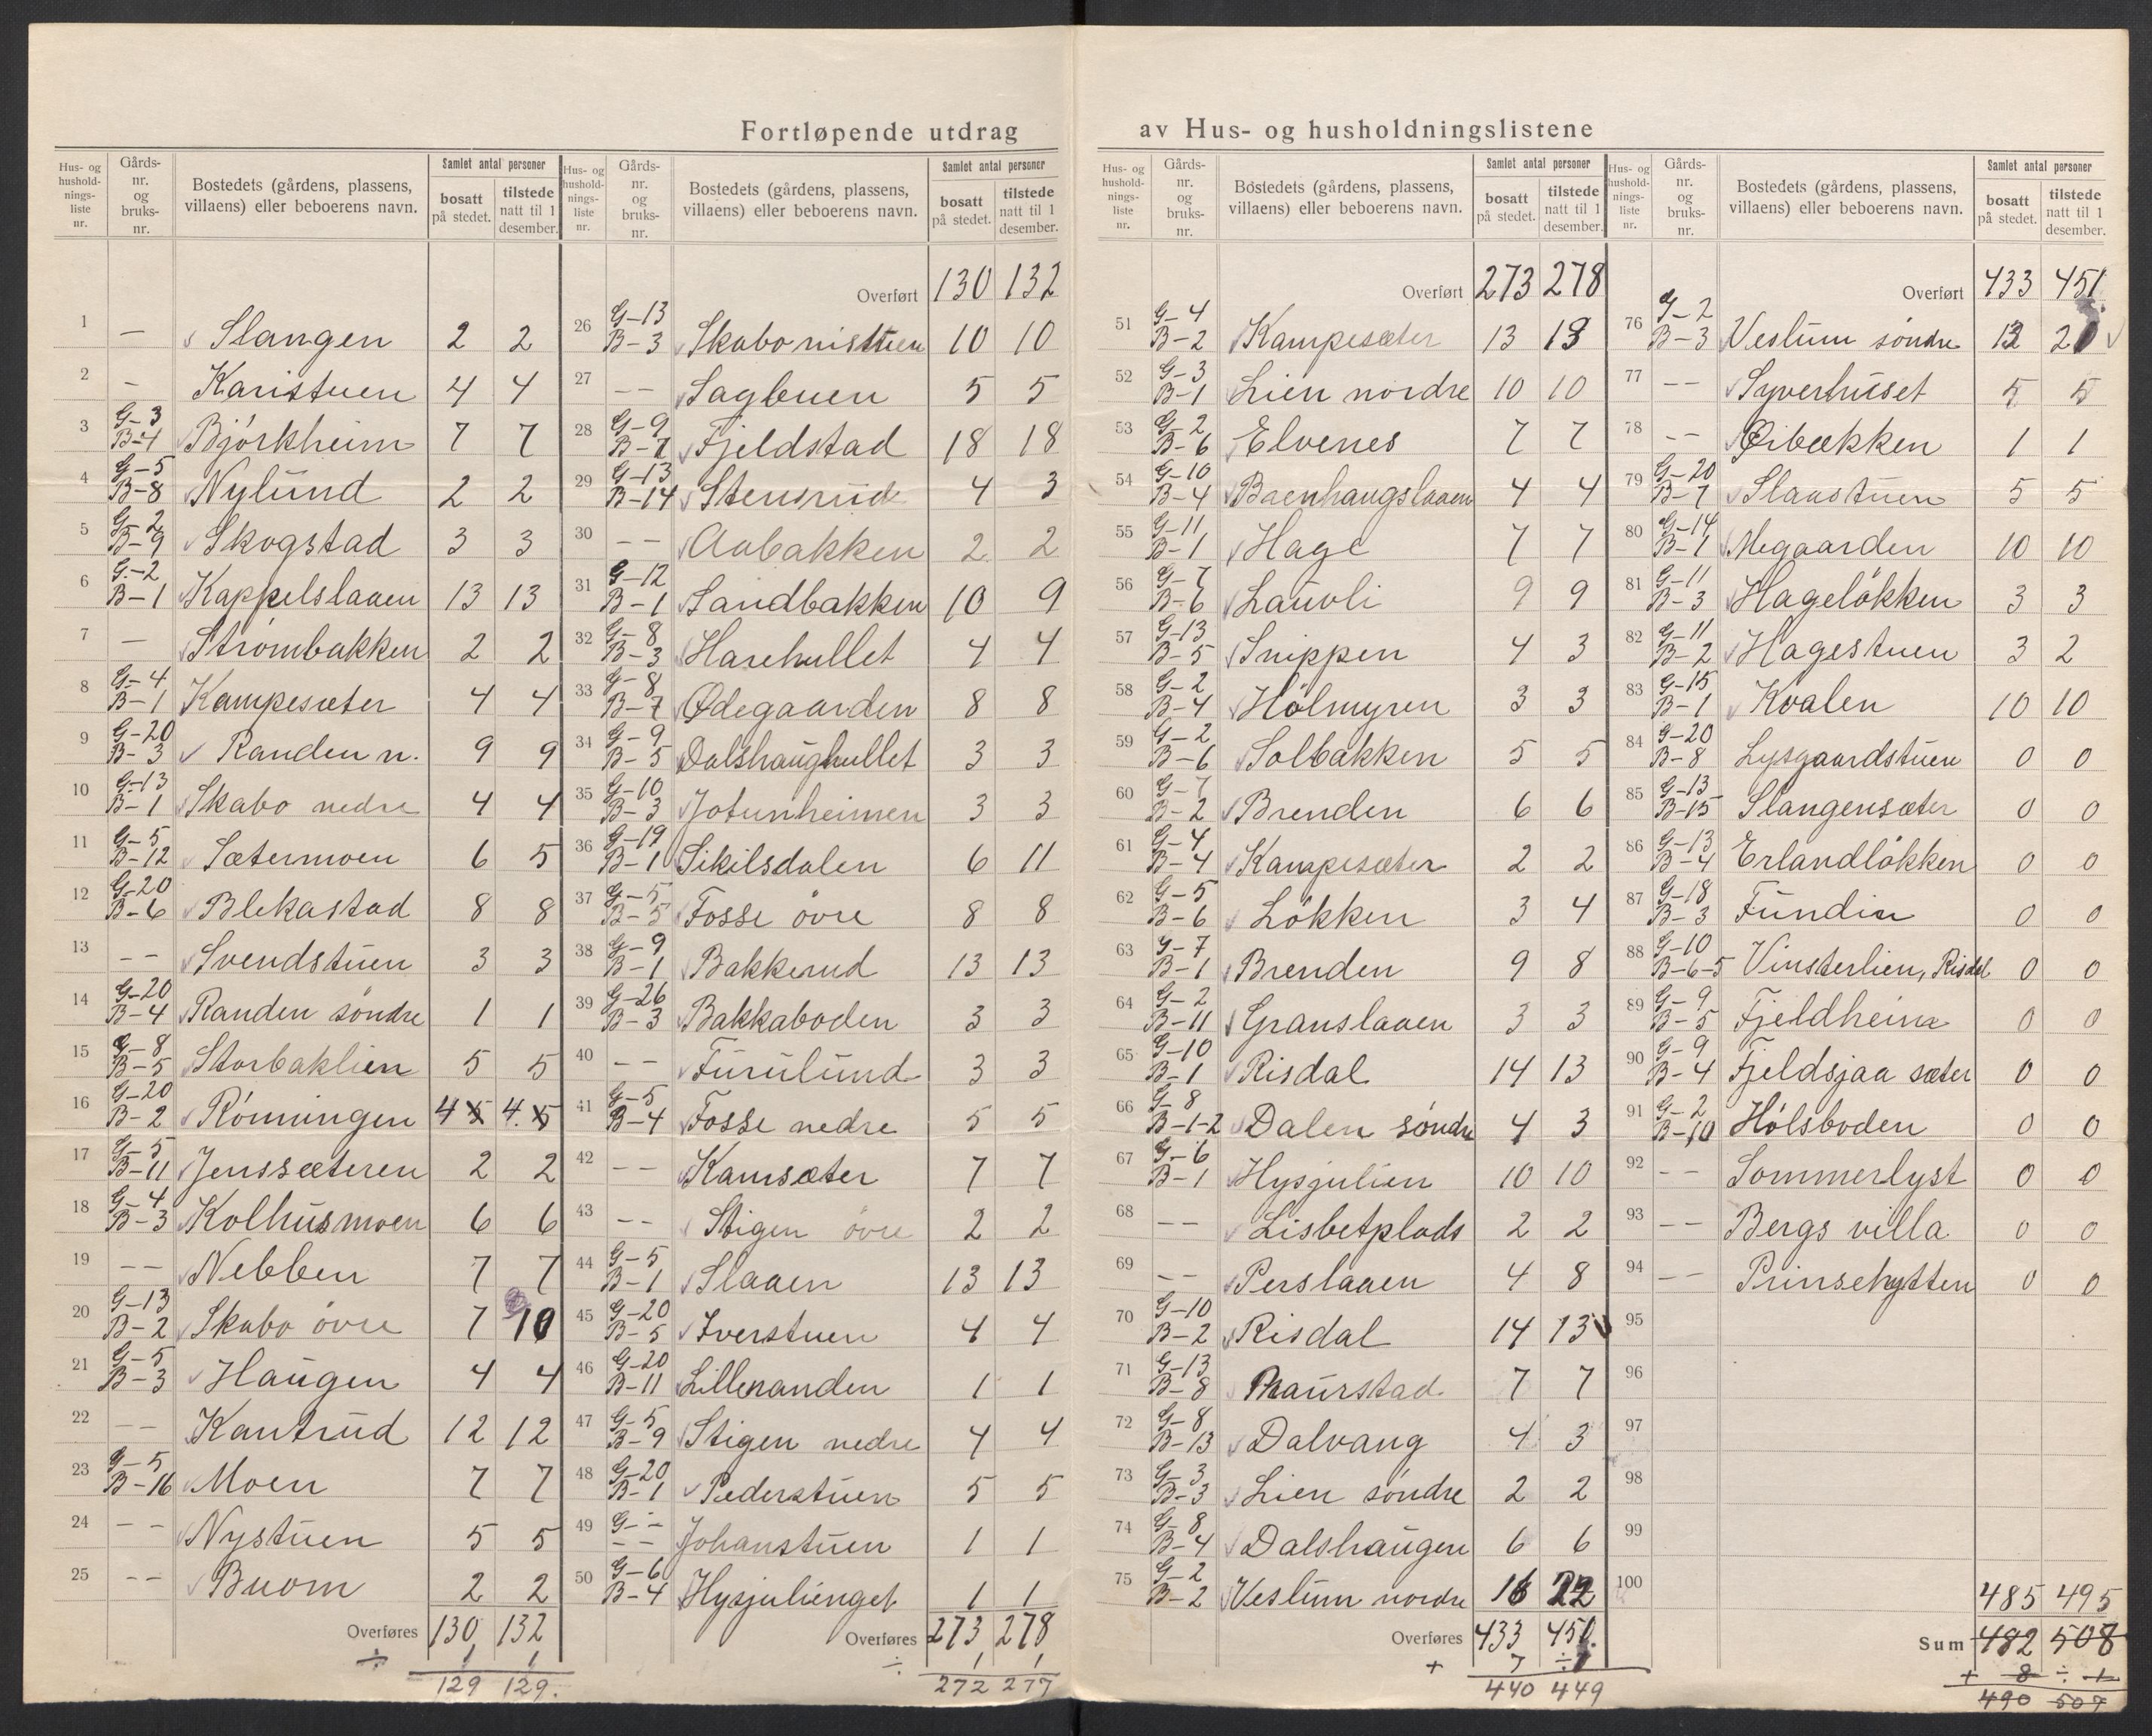 Fortløpende utdrag av Hus- og husholdningslistene
Hus- og hushold- nings- liste nr. | Gårds- nr. og bruks- nr. | Bostedets (gårdens, plassens, villaens) eller beboerens navn. | Samlet antal personer | bosatt på stedet. | tilstede natt til 1 desember.
1 — Slangen 2 2
2 - Karistuen 4 4
3 G-3 B-4 Bjørkheim 7 7
4 G-5 B-8 Nylund 2 2
5 G-2 B-9 Skogstad 3 3
6 G-2 B-1 Kappelslaaen 13 13
7 — Strömbakken 2 2
8 G-4 B-1 Kampesæter 4 4
9 G-20 B-3 Randen n. 9 9
10 G-13 B-1 Skabo nedre 4 4
11 G-5 B-12 Sætermoen 6 5
12 G-20 B-6 Blekastad 8 8
13 -- Svendstuen 3 3
14 G-20 B-4 Randen søndre 1 1
15 G-8 B-5 Storbaklien 5 5
16 G-20 B-2 Rønningen 4 5 4. 5
17 G-5 B-11 Jenssæteren 2 2
18 G-4 B-3 Kolhusmoen 6 6
19 -- Nebben 7 7
20 G-13 B-2 Skabo øvre 7 10
21 G-5 B-3 Haugen 4 4
22 -- Kantrud 12 12
23 G-5 B-16 Moen 7 7
24 -- Nystuen 5 5
25 -- Buom 2 2
Overføres 130 132
÷ 1 1
129 129.
Hus- og hushold- nings- liste nr. | Gårds- nr. og bruks- nr. | Bostedets (gårdens, plassens, villaens) eller beboerens navn. | Samlet antal personer | bosatt på stedet. | tilstede natt til 1 desember.
Overført 130 132
26 G-13 B-3 Skabo nistuen 10 10
27 -- Sagbuen 5 5
28 G-9 B-7 Fjeldstad 18 18
29 G-13 B-14 Stensrud 4 3
30 -- Aabakken 2 2
31 G-12 B-1 Sandbakken 10 9
32 G-8 B-3 Harehullet 4 4
33 G-8 B-7 Ødegaarden 8 8
34 G-9 B-5 Dalshaughullet 3 3
35 G-10 B-3 Jotunheimen 3 3
36 G-19 B-1 Sikilsdalen 6 11
37 G-5 B-5 Fosse øvre 8 8
38 G-9 B-1 Bakkerud 13 13
39 G-26 B-3 Bakkaboden 3 3
40 -- Furulund 3 3
41 G-5 B-4 Fosse nedre 5 5
42 -- Kamsæter 7 7
43 -- Stigen øvre 2 2
44 G-5 B-1 Slaaen 13 13
45 G-20 B-5 Iverstuen 4 4
46 G-20 B-11 Lilleranden 1 1
47 G-5 B-9 Stigen nedre 4 4
48 G-20 B-1 Pederstuen 5 5
49 G-- -- Johanstuen 1 1
50 G-6 B-4 Hysjulienget 1 1
Overføres 273 278
÷ 1 1
272 277
Hus- og hushold- nings- liste nr. | Gårds- nr. og bruks- nr. | Bostedets (gårdens, plassens, villaens) eller beboerens navn. | Samlet antal personer | bosatt på stedet. | tilstede natt til 1 desember.
Overført 273 278
51 G-4 B-2 Kampesæter 13 13
52 G-3 B-1 Lien nordre 10 10
53 G-2 B-6 Elvenes 7 7
54 G-10 B-4 Baenhaugslaaen 4 4
55 G-11 B-1 Hage 7 7
56 G-7 B-6 Lauvli 9 9
57 G-13 B-5 Snippen 4 3
58 G-2 B-4 Hølmyren 3 3
59 G-2 B-6 Solbakken 5 5
60 G-7 B-2 Brenden 6 6
61 G-4 B-4 Kampesæter 2 2
62 G-5 B-6 Løkken 3 4
63 G-7 B-1 Brenden 9 8
64 G-2 B-11 Granslaaen 3 3
65 G-10 B-1 Risdal 14 13
66 G-8 B-1-2 Dalen søndre 4 3
67 G-6 B-1 Hysjulien 10 10
68 -- Lisbetplads 2 2
69 -- Perslaaen 4 8
70 G-10 B-2 Risdal 14 13
71 G-13 B-8 Maurstad 7 7
72 G-8 B-13 Dalvang 4 3
73 G-3 B-3 Lien søndre 2 2
74 G-8 B-4 Dalshaugen 6 6
75 G-2 B-2 Veslum nordre 16 22
Overføres 433 451.
+ 7 ÷
440 449
Hus- og hushold- nings- liste nr. | Gårds- nr. og bruks- nr. | Bostedets (gårdens, plassens, villaens) eller beboerens navn. | Samlet antal personer | bosatt på stedet. | tilstede natt til 1 desember.
Overført 433 451
76 G-2 B-3 Veslum søndre
77 -- Syverhuset 5 5
78 -- Øibækken 1 1
79 G-20 B-7 Slaastuen 5 5
80 G-14 B-1 Megaarden 10 10
81 G-11 B-3 Hageløkken 3 3
82 G-11 B-2 Hagestuen 3 2
83 G-15 B-1 Kvalen 10 10
84 G-20 B-8 Lysgaardstuen 0 0
85 G-13 B-15 Slangensæter 0 0
86 G-13 B-4 Erlandløkken 0 0
87 G-18 B-3 Fundin 0 0
88 G-10 B-6-5 Vinsterlien, Risdal 0 0
89 G-9 B-5 Fjeldheim 0 0
90 G-9 B-4 Fjeldsjaa sæter 0 0
91 G-2 B-10 Hølsboden 0 0
92 -- Sommerlyst 0 0
93 -- Bergs villa 0 0
94 -- Prinsehytten 0 0
95
96
97
98
99
100
485 495
Sum 482 508
+ 8 ÷ 1
490 507